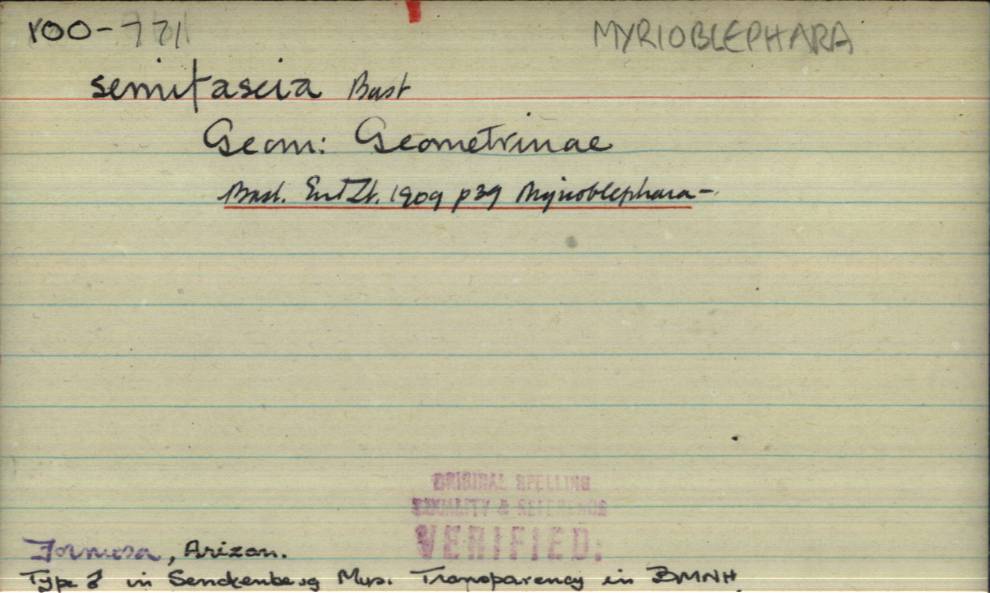 100-7711 MYRIOBLEPHARA
semifascia Bast
Geom: Geometrinae
Bast. Ent Zt. 1909 p39 Myrioblephara-
ORIGINAL SPELLING
LOCALITY & REFERENCE
VERIFIED:
Formosa, Arizan.
Type ♂ in Senckenberg Mus. Transparency in BMNH.